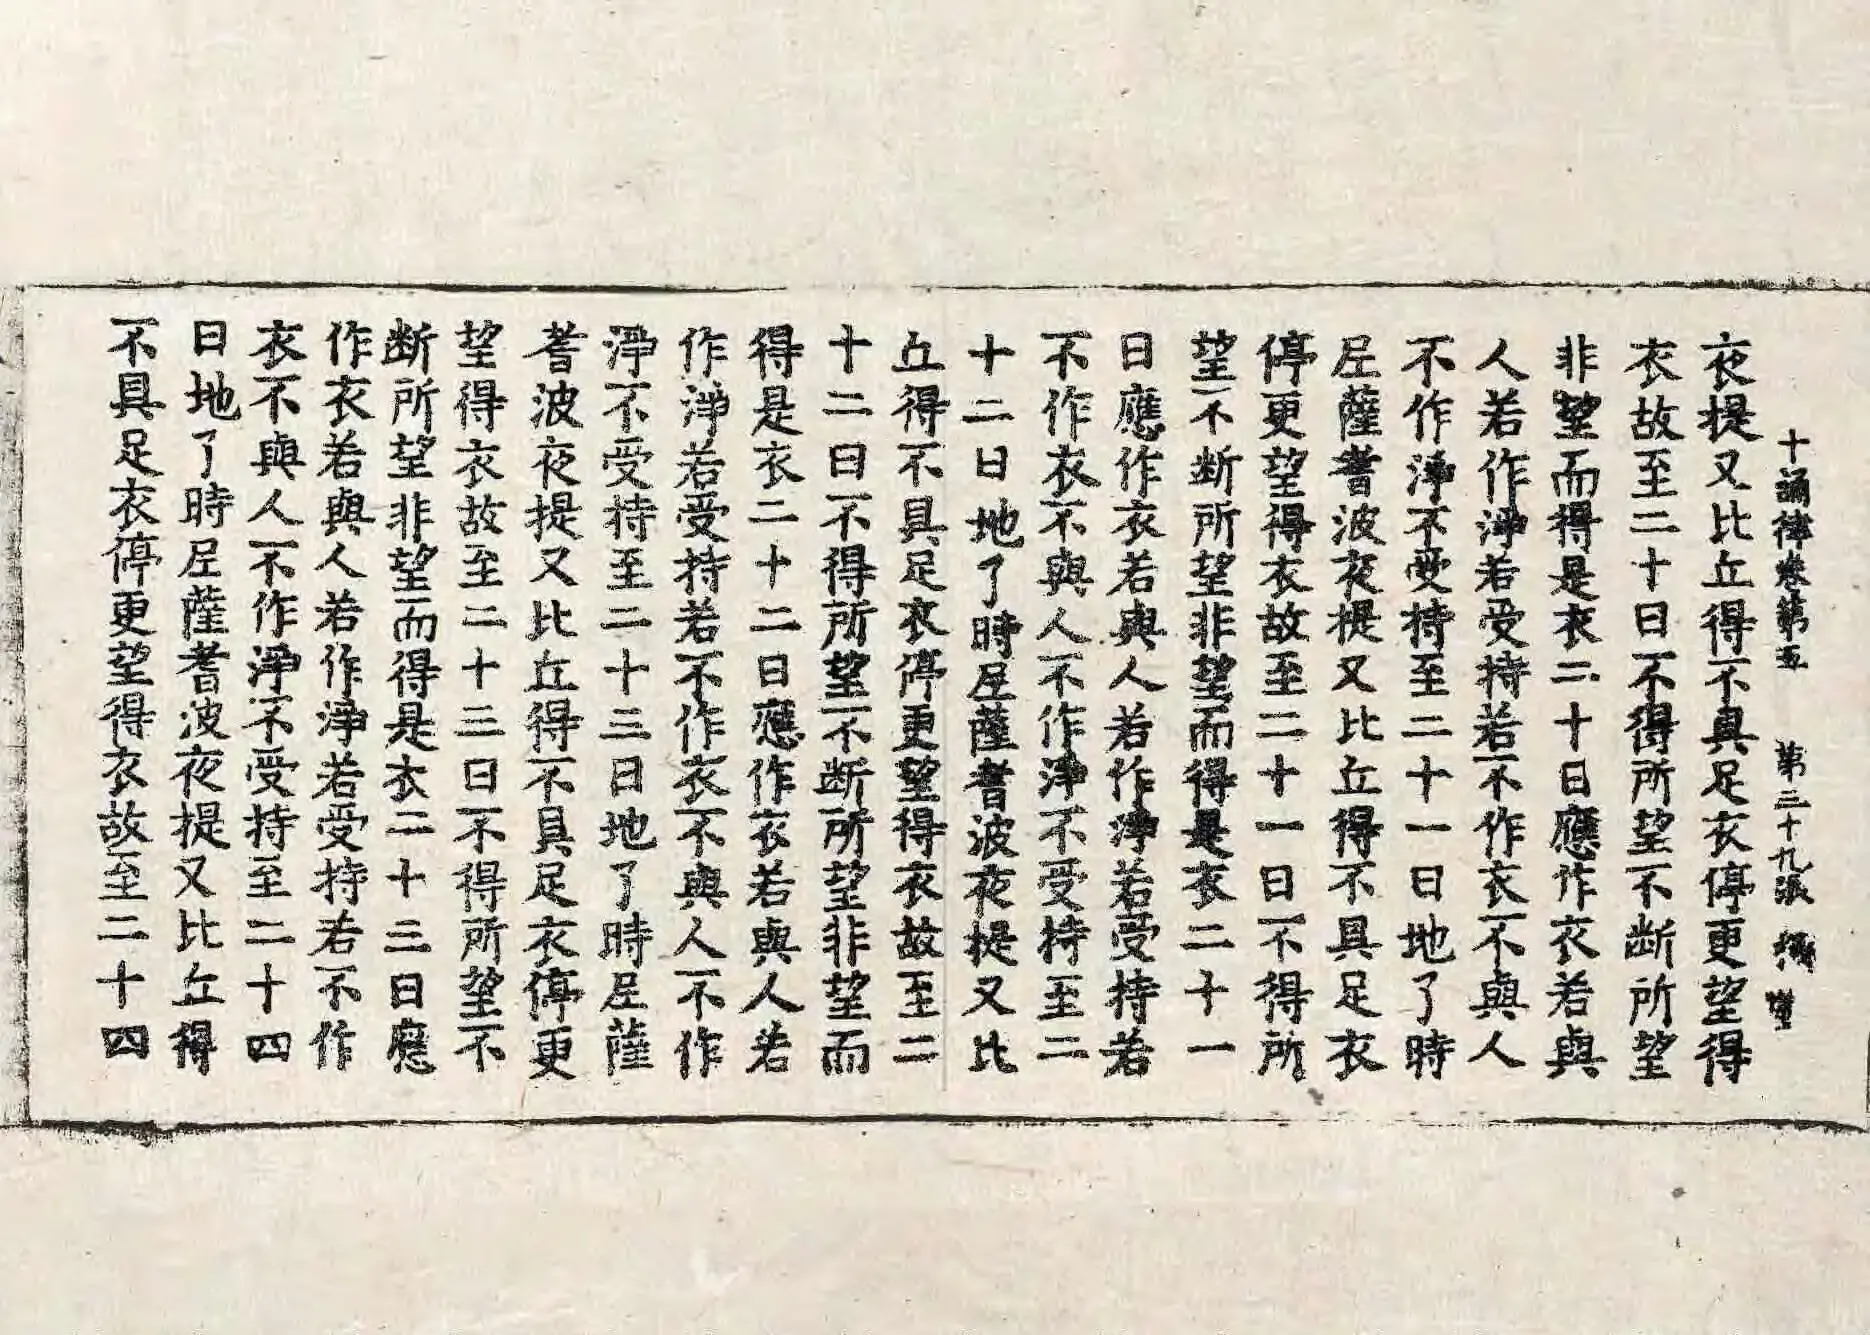 十誦律卷第五　第三十九張
夜提又比丘得不具足衣停更望得
衣故至二十日不得所望不断所望
非望而得是衣二十日應作衣若與
人若作淨若受持若不作衣不與人
不作淨不受持至二十一日地了時
尼薩耆波夜提又比丘得不具足衣
停更望得衣故至二十一日不得所
望不断所望非望而得是衣二十一
日應作衣若與人若作淨若受持若
不作衣不與人不作淨不受持至二
十二日地了時尼薩耆波夜提又比
丘得不具足衣停更望得衣故至二
十二日不得所望不断所望非望而
得是衣二十二日應作衣若與人若
作淨若受持若不作衣不與人不作
淨不受持至二十三日地了時尼薩
耆波夜提又比丘得不具足衣停更
望得衣故至二十三日不得所望不
断所望非望而得是衣二十三日應
作衣若與人若作淨若受持若不作
衣不與人不作淨不受持至二十四
日地了時尼薩耆波夜提又比丘得
不具足衣停更望得衣故至二十四